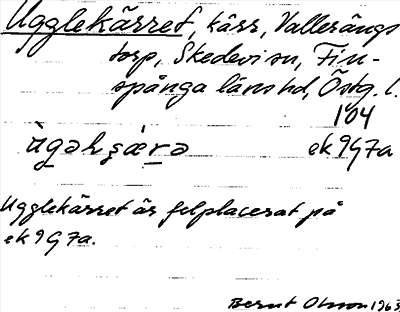 Ugglekärret, kärr, Vallerängs
torp, Skedevi sn, Fin-
spånga läns hd, Östg. l.
1'04
ùgəlɩʂæ̀rə ek 9G7a
Ugglekärret är felplacerat på
ek 9G7a.
Bernt Olsson 1963